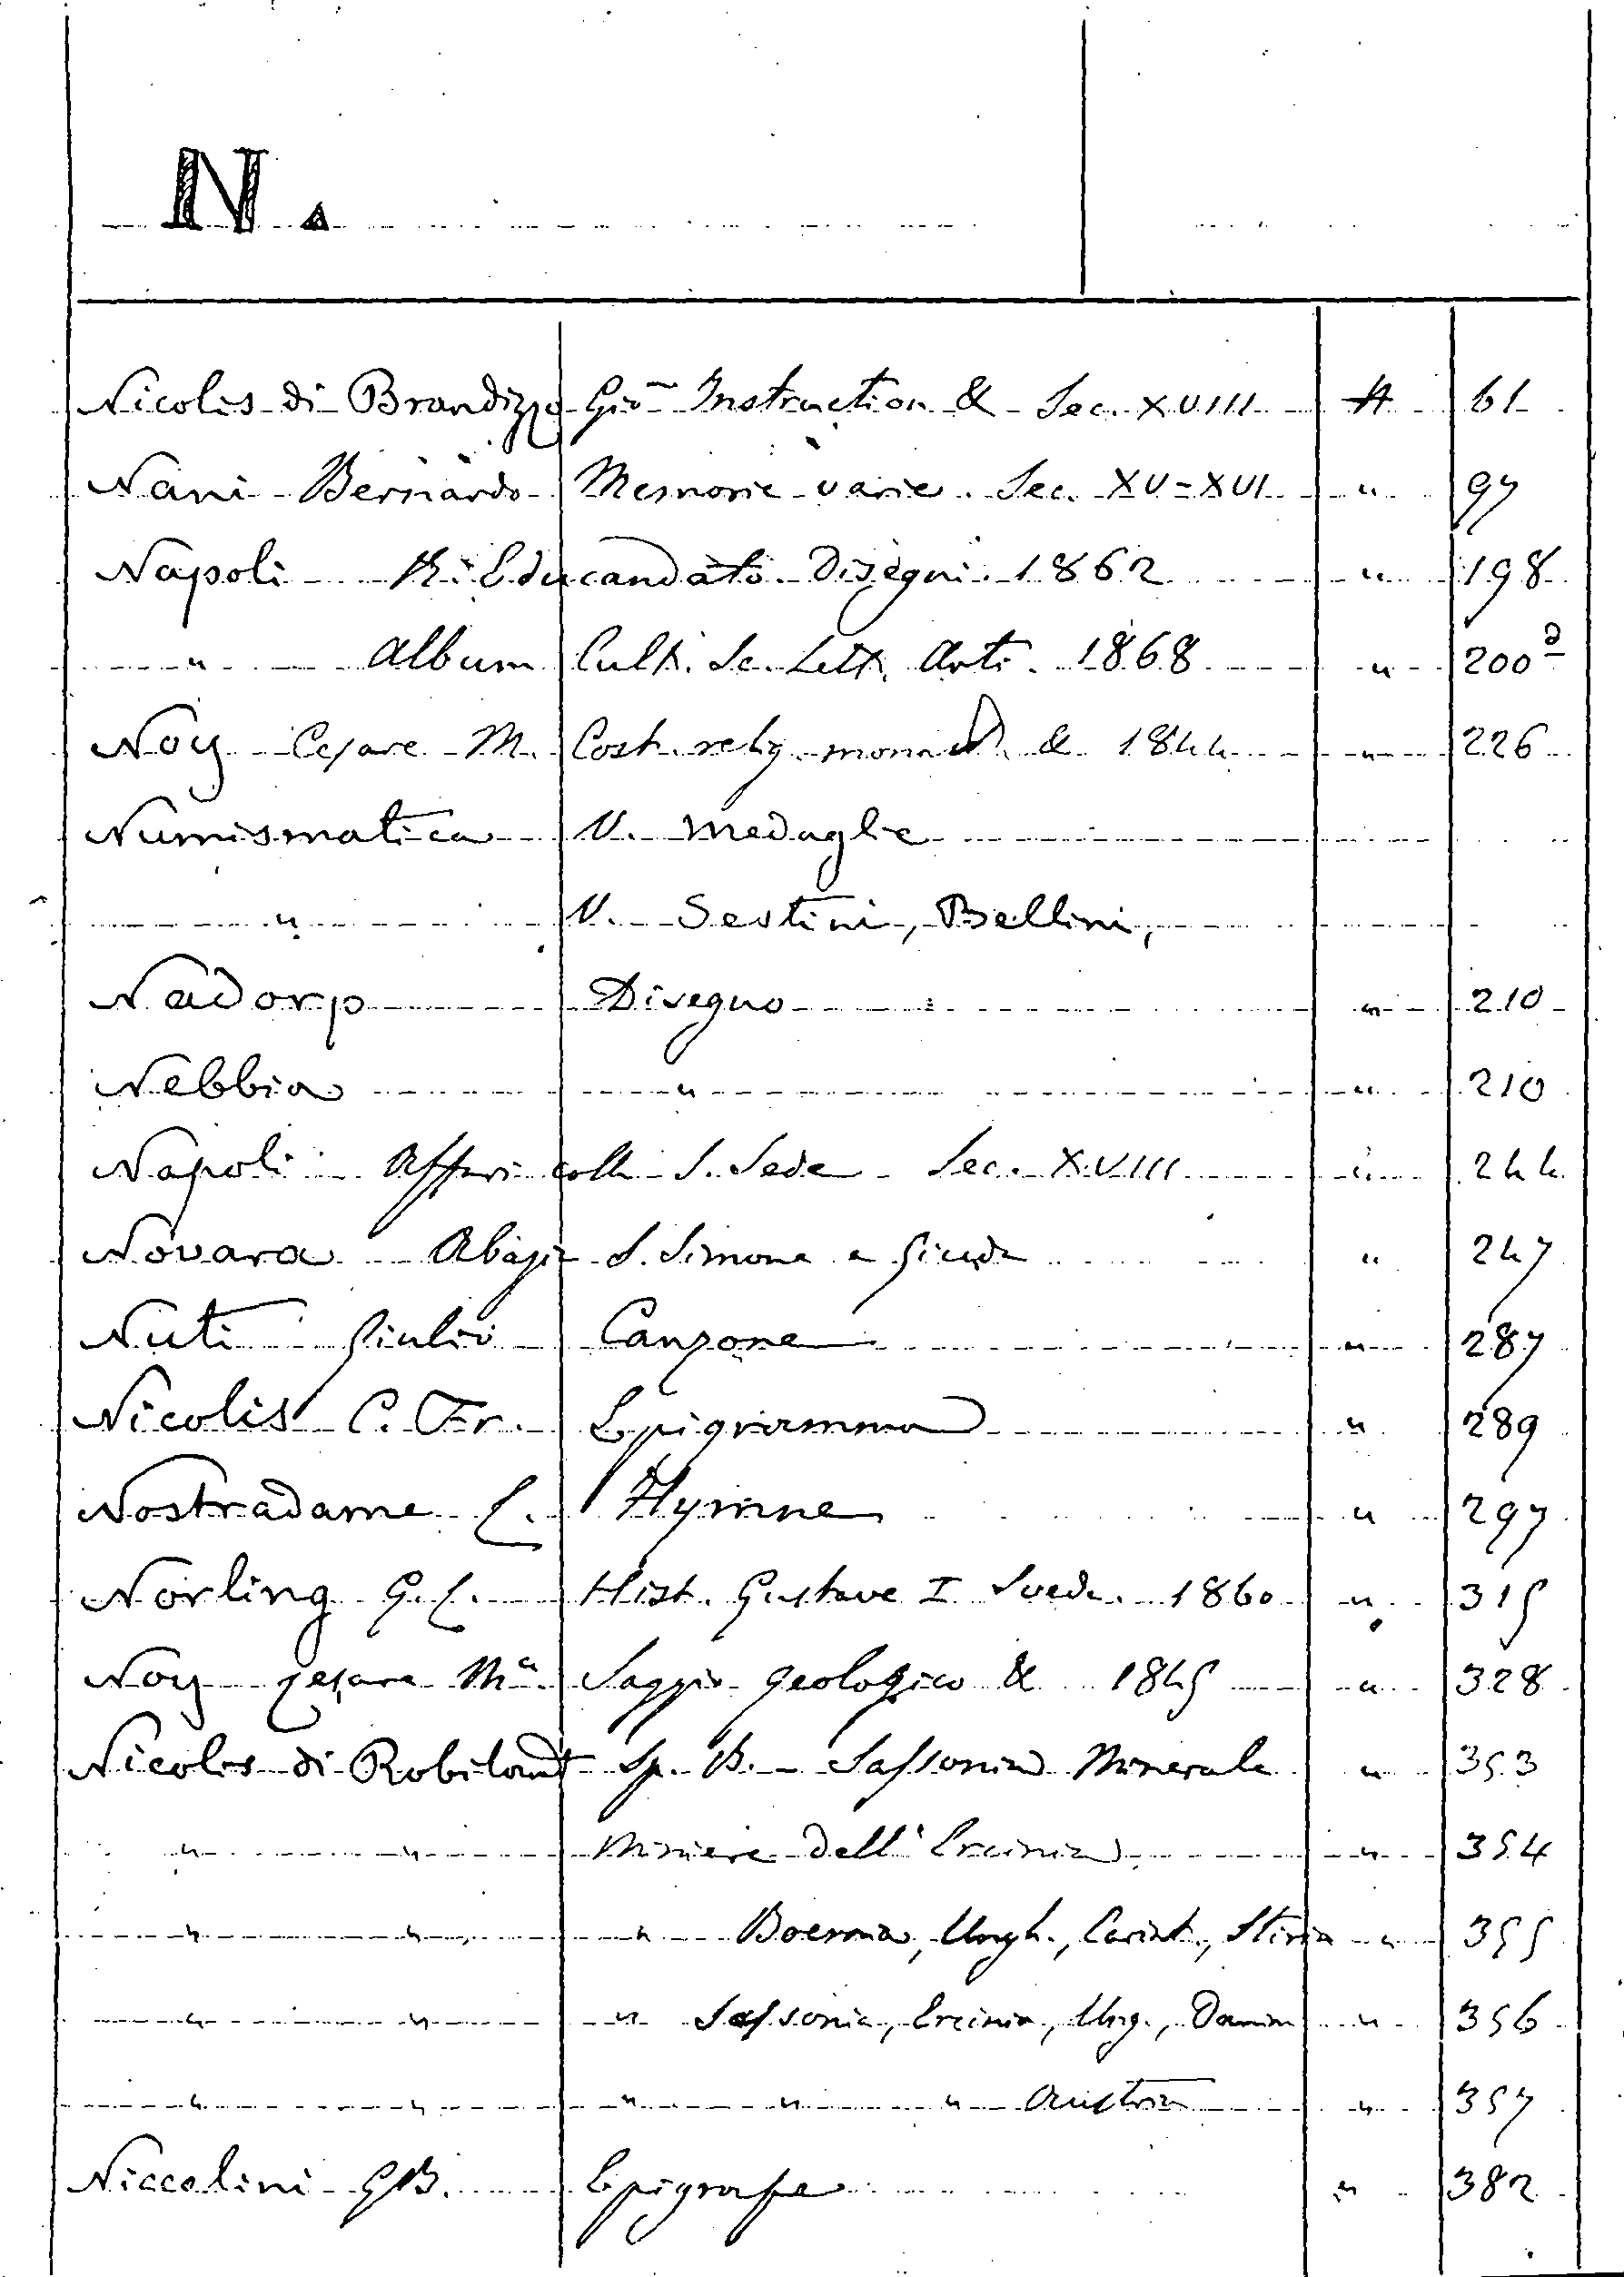 N.
Nicolis di Brandizzo Gio Instruction & Sec. XVIII A 61
Nani Bernardo Memorie varie. Sec. XV-XVI " 97
Napoli R. Educandato. Disegni. 1862 " 198
" Album Cult. Sc. Lett. Arti. 1868 " 200
Noy Cesare M. Cost. relig. monast. & 1844 " 226
Numismatica V. Medaglie
" V. Sestini, Bellini,
Nadorp Disegno " 210
Nebbia " " 210
Napoli Affari colla S. Sede Sec. XVIII " 244
Novara Abazia S. Simone e Giuda " 247
Nuti Giulio Canzone " 287
Nicolis C. Fr. Epigramma " 289
Nostradame C. Hymne " 297
Norling G. C. Hist. Gustave I Suede. 1860 " 315
Noy Cesare Mª Saggio geologico & 1845 " 328
Nicolis di Robilant Sp. B. - Sassonia Minerale " 353
" " Miniere dell' Ercinia " 354
" " " Boemia, Ungh., Carint., Stiria " 355
" " " Sassonia, Ercinia, Ung., " 356
" " " " " Austria " 357
Niccolini GB. Epigrafe " 382